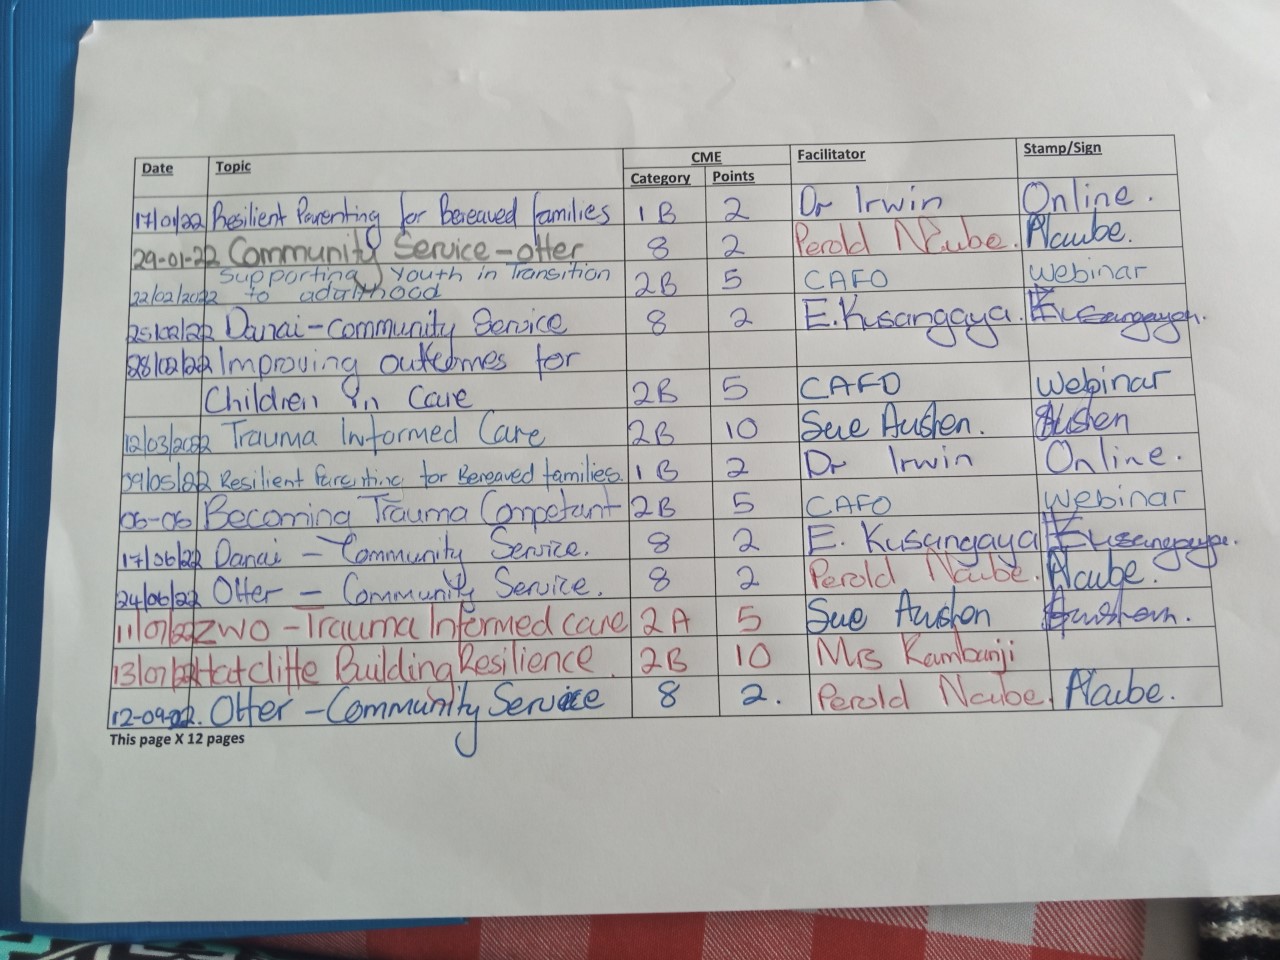 Date Topic CME Facilitator Stamp/Sign
Category Points
17/01/22 Resilient Parenting for Bereaved families 1B 2 Dr Irwin Online.
29-01-22 Community Service - otter 8 2 Perold Ncube. Ncube.
Supporting Youth in Transition
22/02/2022 to adulthood 2B 5 CAFO webinar
25/02/22 Danai - Community Service 8 2 E. Kusangaya. Kusangaya.
28/02/22 Improving outcomes for
Children in Care 2B 5 CAFO Webinar
12/03/2022 Trauma Informed Care 2B 10 Sue Austen. Austen
09/05/22 Resilient Parenting for Bereaved families. 1B 2 Dr Irwin Online.
06-06 Becoming Trauma Competant 2B 5 CAFO Webinar
17/06/22 Danai - Community Service. 8 2 E. Kusangaya Kusangaya.
24/06/22 Otter - Community Service. 8 2 Perold Ncube. Ncube.
11/07/22 ZWO - Trauma Informed care 2A 5 Sue Austen
13/07/22 Hatcliffe Building Resilience. 2B 10 Mrs Kambanji
12-09-22. Otter - Community Service 8 2. Perold Ncube. Ncube.
This page X 12 pages